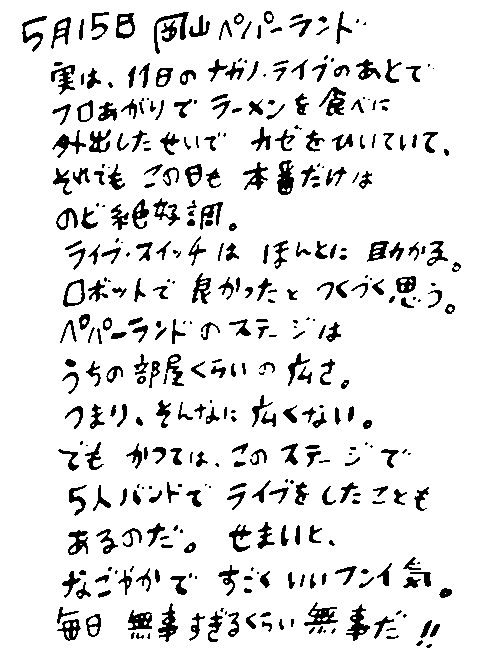 5月15日 岡山ペパーランド
実は、11日のナガノ・ライブのあとで
フロあがりで ラーメンを食べに
外出したせいで カゼをひいていて、
それでも この日も 本番だけは
のど絶好調。
ライブ・スイッチは ほんとに 助かる。
ロボットで 良かったと つくづく思う。
ペパーランドのステージは
うちの部屋くらいの広さ。
つまり、そんなに 広くない。
でも かつては、このステージで
5人バンドで ライブをしたことも
あるのだ。 せまいと、
なごやかで すごくいいフンイ気。
毎日 無事すぎるくらい無事だ!!